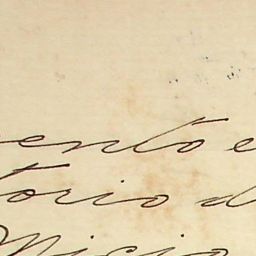 ento e
torio d
Micio